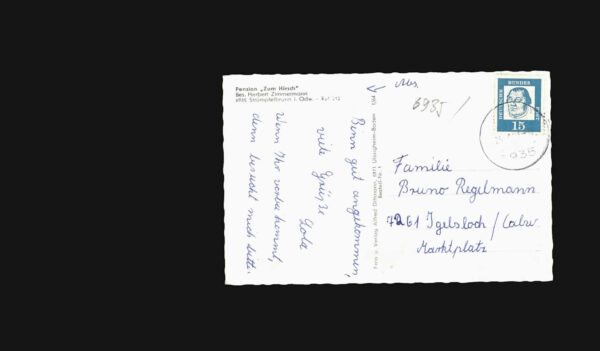 Pension „Zum Hirsch"
Bes. Herbert Zimmermann
6935 Strümpfelbrunn i. Odw. - Ruf 215
Bin gut angekommen,
viele Grüsse
Lola
Wenn Ihr vorbei kommt,
dann besucht mich bitte.
Foto u. Verlag Alfred Dittmann, 6971 Uissigheim-Baden
Bestell-Nr. 1
Abs.
6985 /
DEUTSCHE
BUNDES
15
6935
Familie
Bruno Regelmann
7261 Igelsloch / Calw
Marktplatz